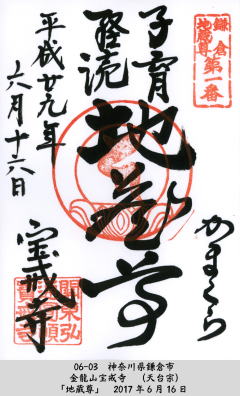 鎌倉
地蔵尊
第一番
子育
経読
地蔵尊
かまくら
宝戒寺
平成廿九年
六月十六日
06-03 神奈川県鎌倉市
金龍山宝戒寺 (天台宗)
「地蔵尊」 2017年6月16日